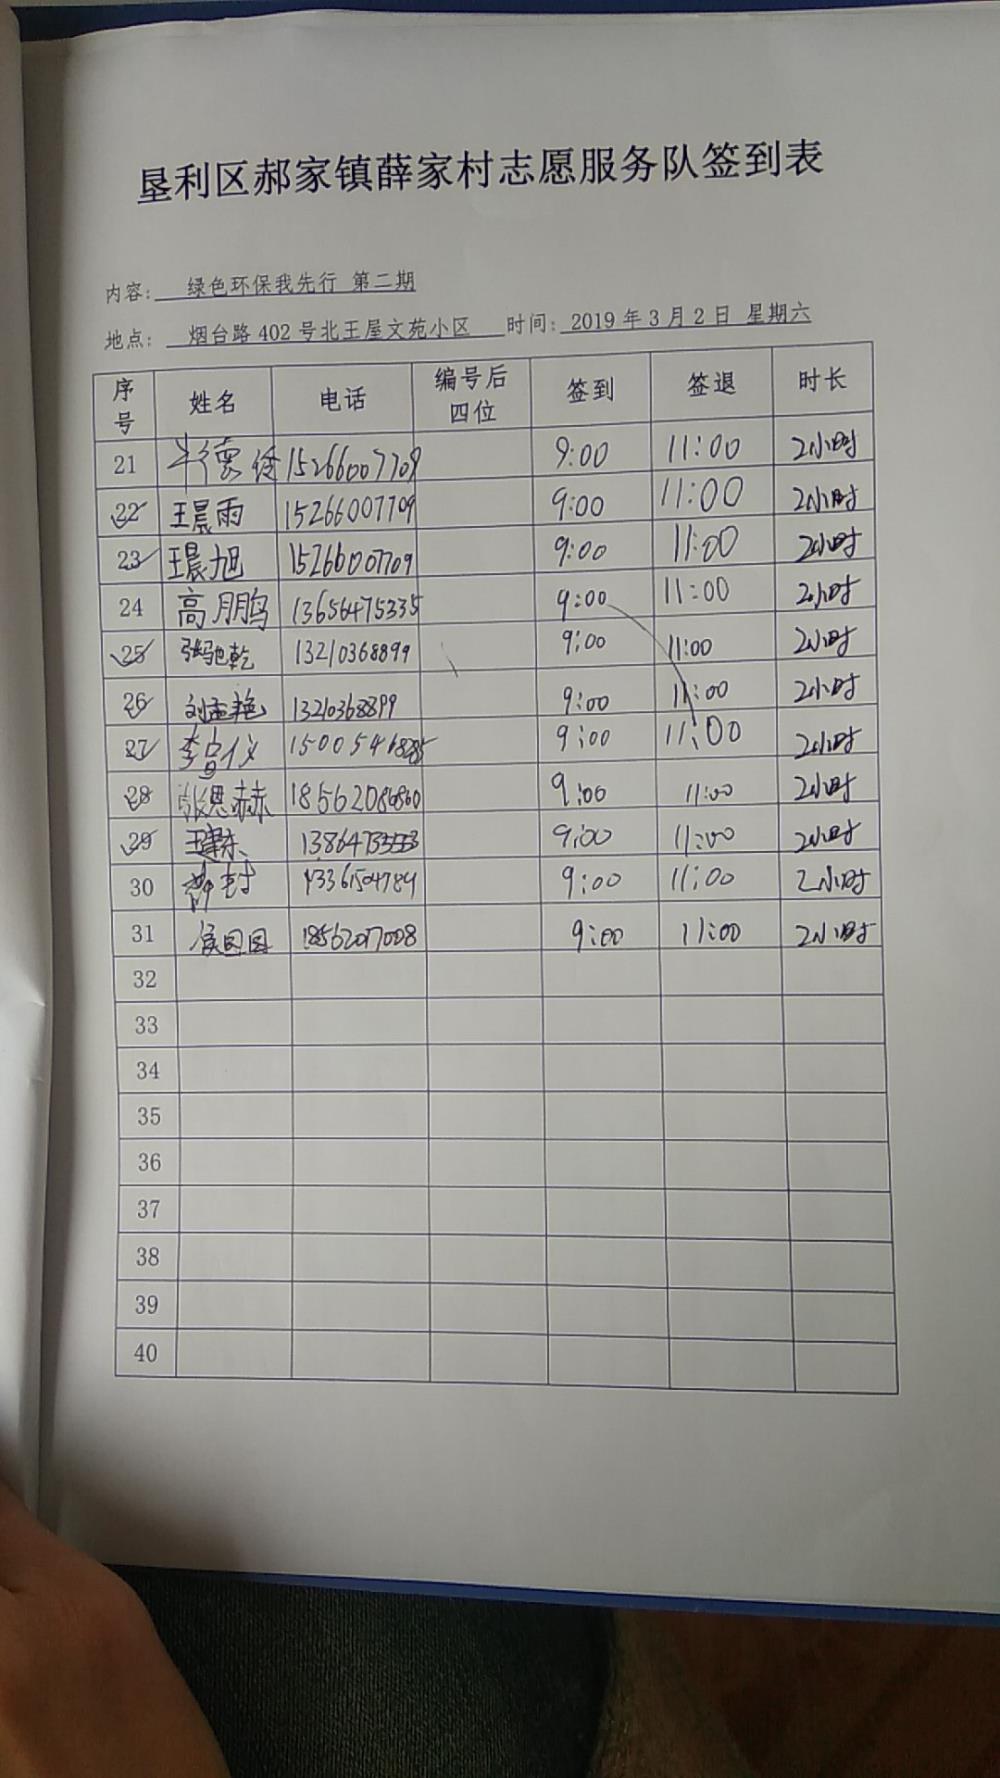 垦利区郝家镇薛家村志愿服务队签到表
内容: 绿色环保我先行 第二期
地点: 烟台路 402 号北王屋文苑小区 时间: 2019 年 3 月 2 日 星期六
序号 姓名 电话 编号后四位 签到 签退 时长
21 15266007709 9:00 11:00 2小时
22 王晨雨 15266007709 9:00 11:00 2小时
23 王晨旭 15266007709 9:00 11:00 2小时
24 高鹏 13656475335 9:00 11:00 2小时
25 张驰乾 13210368899 9:00 11:00 2小时
26 刘孟艳 13210368899 9:00 11:00 2小时
27 9:00 11:00 2小时
28 张恩赫 9:00 11:00 2小时
29 王建东 9:00 11:00 2小时
30 9:00 11:00 2小时
31 侯园园 18562077008 9:00 11:00 2小时
32
33
34
35
36
37
38
39
40